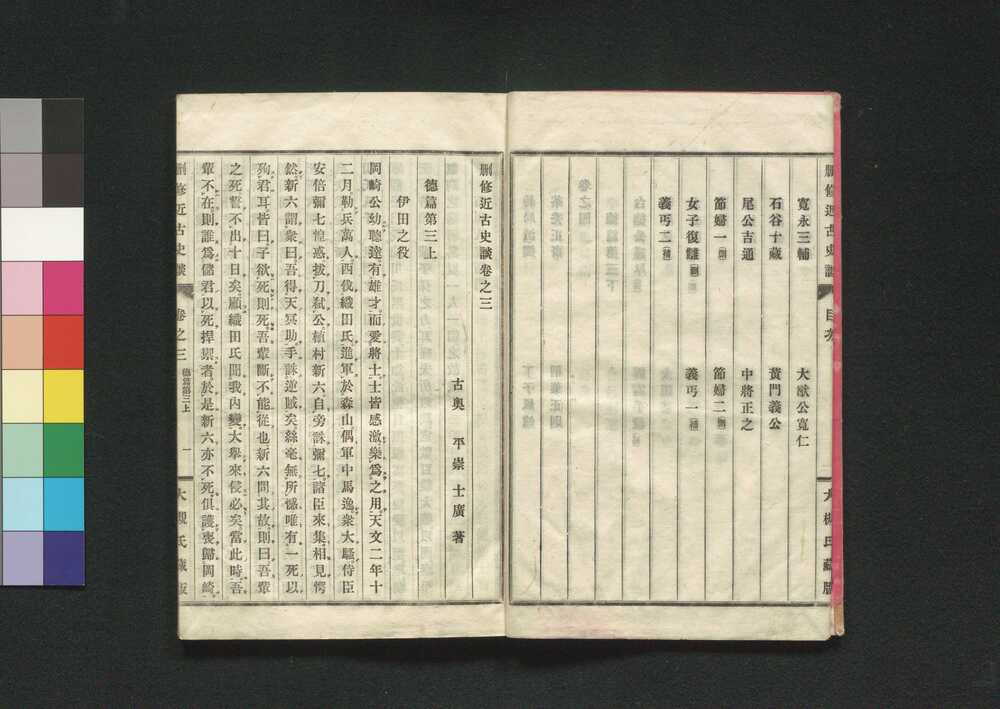 刪修近古史談
目次
大槻氏藏版
寬永三輔
大猷公寬仁
石谷十藏
黃門義公
尾公吉通
中將正之
節婦一
節婦二
女子復讎
義丐一
義丐二
刪修近古史談卷之三
古奧 平崇士廣著
德篇第三上
伊田之役
岡崎公幼聰達有雄才而愛將士士皆感激樂爲之用天文二年十
二月勒兵萬人西伐織田氏進軍於森山偶軍中馬逸衆大騷侍臣
安倍彌七惶惑拔刀弑公植村新六自旁誅彌七諸臣來集相見愕
然新六謂衆曰吾得天冥助手誅逆賊矣絲毫無所憾唯有一死以
殉君耳皆曰子欲死則死吾輩斷不能從也新六問其故則曰吾輩
之死誓不出十日矣顧織田氏聞我內變大擧來侵必矣當此時吾
輩不在則誰爲儲君以死捍禦者於是新六亦不死俱護喪歸岡崎
刪修近古史談
卷之三
德篇第三上
一
大槻氏藏版